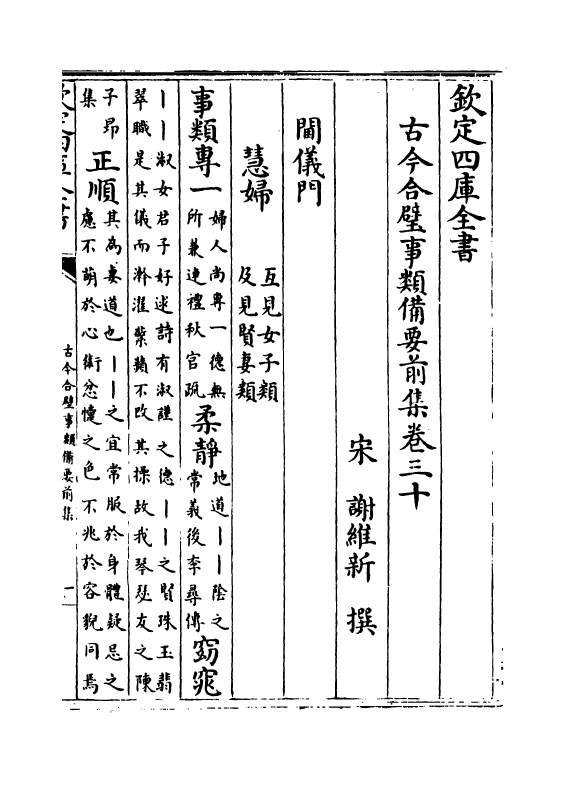 欽定四庫全書
古今合璧事類備要前集卷三十
宋 謝維新 撰
閫儀門
慧婦 互見女子類
及見賢妻類
事類專一 婦人尚專一德無
所兼連禮秋官疏 柔靜 地道丨丨陰之
常義後李尋傳 窈窕
丨丨淑女君子好逑詩有淑謹之德丨丨之賢珠玉翡
翠職是其儀而澣濯蘩蘋不改其操故我琴瑟友之陳
子昂
集 正順 其為妻道也丨丨之宜常服於身體疑忌之
慮不萌於心術忿懥之色不兆於容貌同焉
古今合璧事類備要前集
一